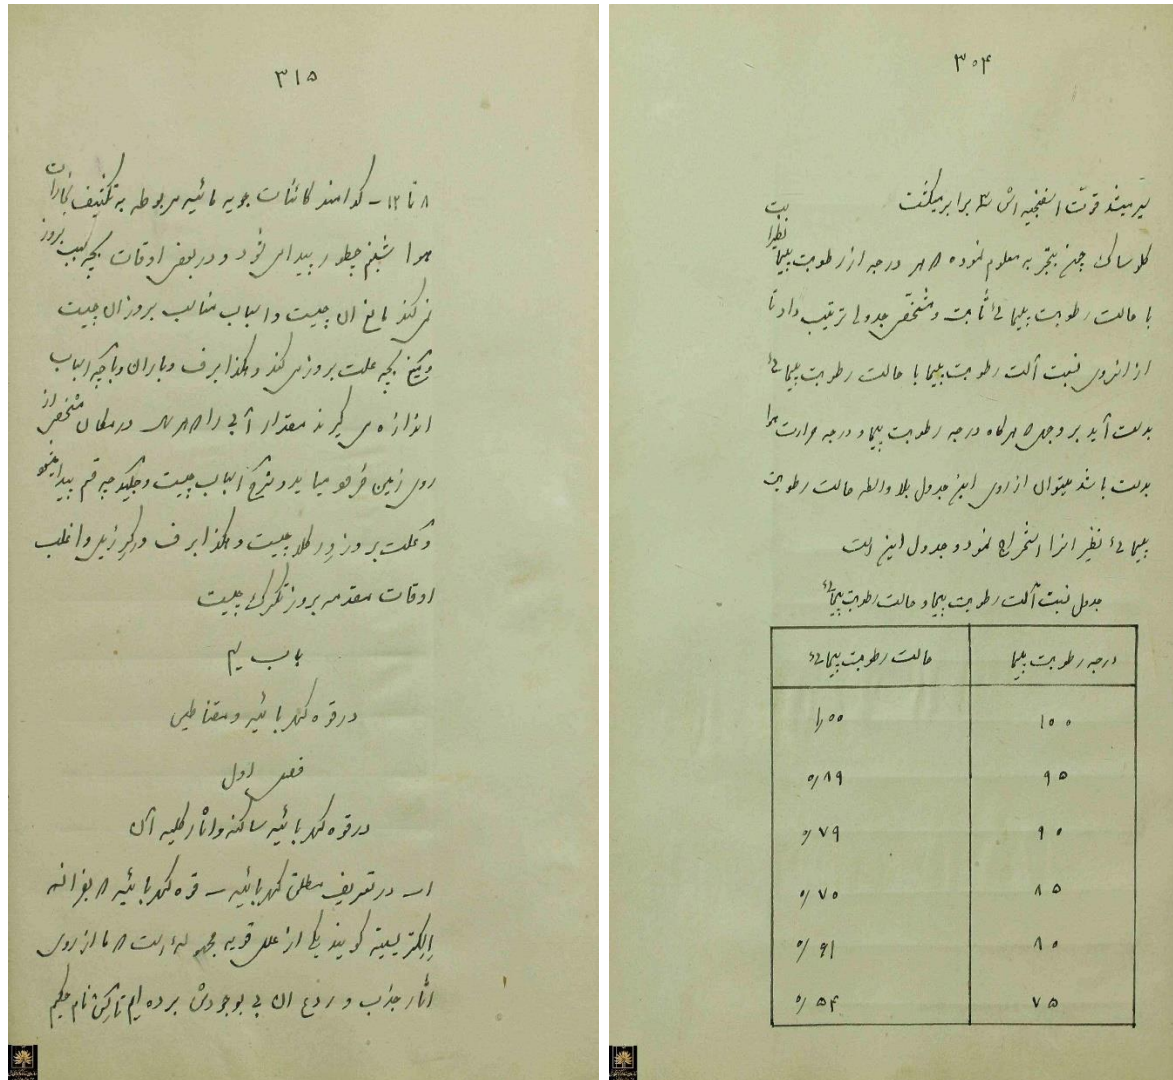 ۳۰۴
برابر میگشت
گلوساک چون بتجربه معلوم نموده هر درجه از رطوبت پیما
نظرا
با حالت رطوبت پیمائی ثابت و مشخص جدولی ترتیب داد تا
از انروی نسبت آلت رطوبت پیما با حالت رطوبت پیمائی
بدست آید بر وجهی هرگاه درجه رطوبت پیما و درجه حرارت هوا
بدست باشد میتوان از روی این جدول بلا واسطه حالت رطوبت
پیمائی نظیر انرا استخراج نمود و جدول این است
جدول نسبت آلت رطوبت پیما و حالت رطوبت پیمائی
درجه رطوبت پیما حالت رطوبت پیمائی
۱۰۰ ۱٫۰۰
۹۵ ۰٫۸۹
۹۰ ۰٫۷۹
۸۵ ۰٫۷۰
۸۰ ۰٫۶۱
۷۵ ۰٫۵۴
۳۱۵
۸ تا ۱۲ – کدامند کائنات جویه مائیه مربوطه به تکثیف بخارات
هوا شبنم چطور پیدا می شود و در بعض اوقات بچه سبب بروز
نمی کند مانع ان چیست و اسباب مناسب بروز ان چیست
بچه علت بروز می کند و هکذا برف و باران و با چه اسباب
اندازه می گیرند مقدار آبی را در مکان مشخص از
روی زمین اسباب چیست و چه قسم پیدا میشود
و علت بروز چیست و هکذا برف و اغلب
اوقات مقدمه بروز تگرگ چیست
باب
در قوه کهربائیه و مقناطیس
فصل اول
در قوه کهربائیه ساکنه و اثار کلیه آن
ا – در تعریف مطلق کهربائیه – قوه کهربائیه بفرانسه
الکتریسیته گویند یکی از علل قویه مجهوله است ما از روی
اثار جذب و ردع ان پی بوجودش برده ایم نام حکیم